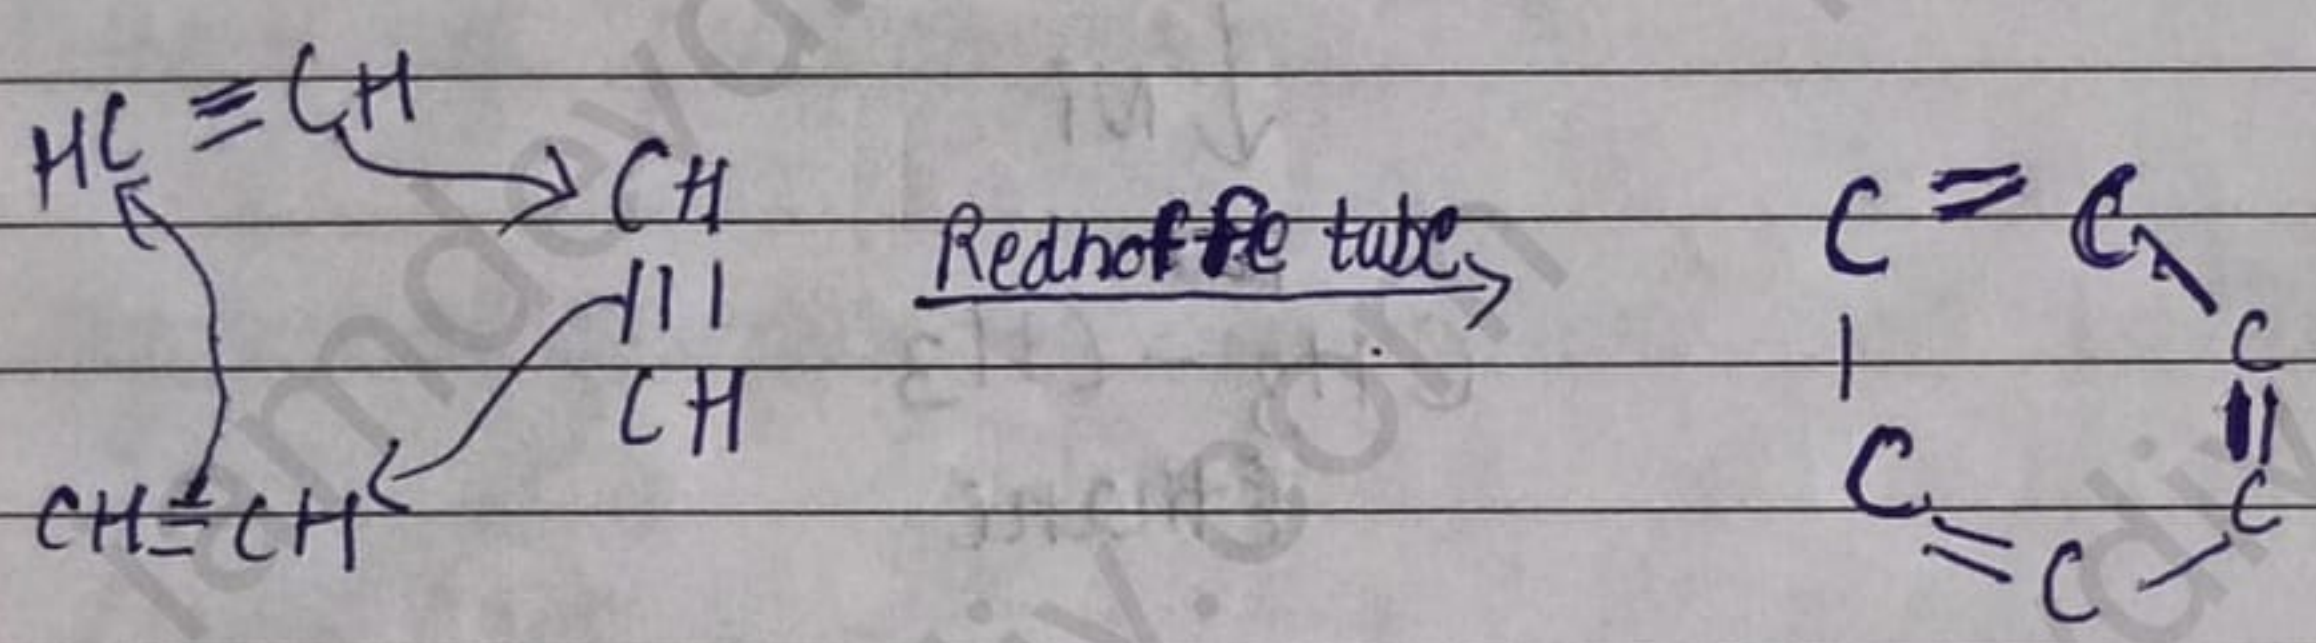 HC ≡ CH
CH
|||
CH
CH ≡ CH
Redhot Fe tube
C = C
C
||
C
|
C = C